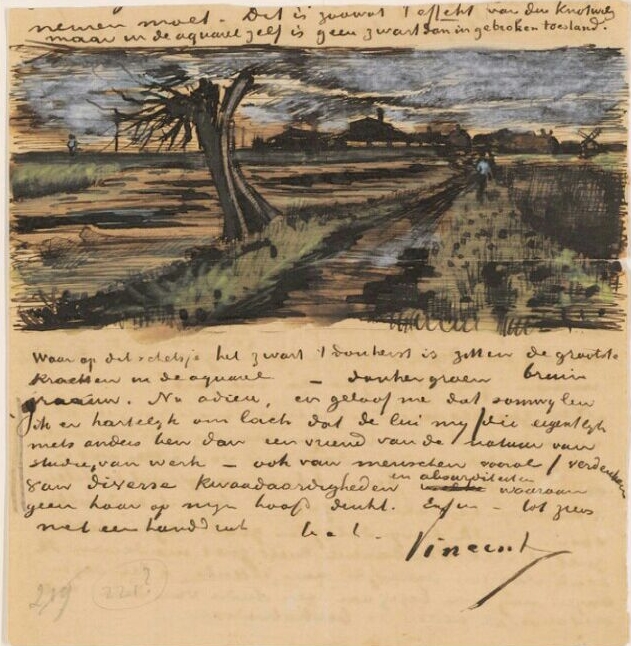 nemen moet. Dit is zoowat 't effekt van den knotwilg
maar in de aquarel zelf is geen zwart dan in gebroken toestand.
Waar op dit schetsje het zwart 't donkerst is zitten de grootste
krachten in de aquarel – donkergroen bruin
graauw. Nu adieu, en geloof me dat somwylen
ik er hartelyk om lach dat de lui my / die eigentlyk
niets anders ben dan een vriend van de natuur van
studie, van werk – ook van menschen vooral / verdenken
van diverse kwaadaardigheden en absurditeiten waaraan
geen haar op myn hoofd denkt. Enfin – tot ziens
met een handdruk t. à t.
Vincent